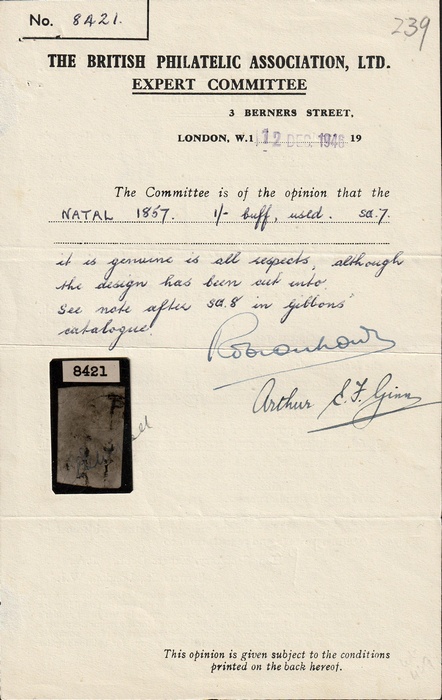 No. 8421.
239
THE BRITISH PHILATELIC ASSOCIATION, LTD.
EXPERT COMMITTEE
3 BERNERS STREET,
LONDON, W.1 12 DEC 1946 19
The Committee is of the opinion that the
NATAL 1857. 1/- buff, used. SG.7.
it is genuine is all respects, although
the design has been cut into.
See note after SG.8 in Gibbons'
catalogue.
Arthur E.F. Ginn
8421
This opinion is given subject to the conditions
printed on the back hereof.